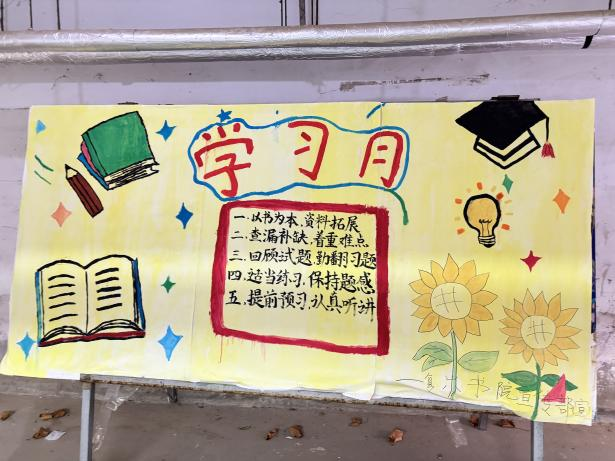 学习月
一.以书为本,资料拓展
二.查漏补缺,着重难点
三.回顾试题,勤翻习题
四.适当练习,保持题感
五.提前预习,认真听讲
书院宣传部宣